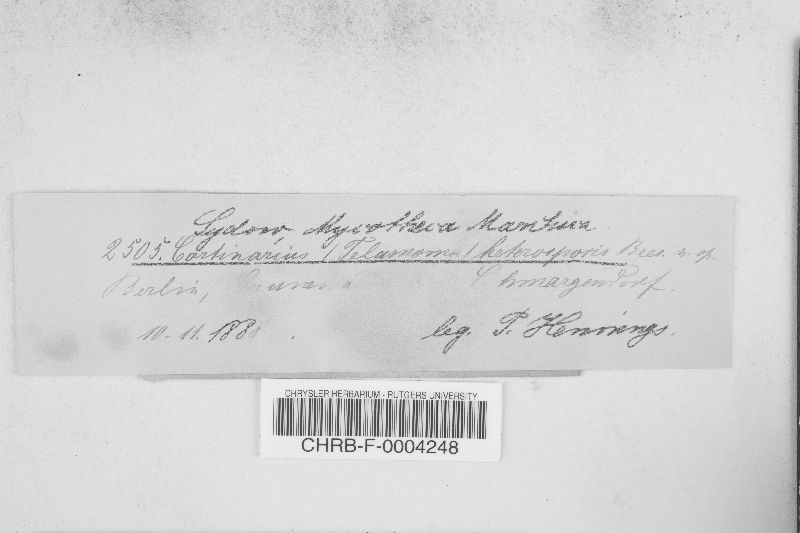 Sydow Mycotheca Marchica.
2505. Cortinarius (Telamonia) heterosporis Bres. n. sp.
Berlin, Schmargendorf.
10-11. 188
leg. P. Hennings.
CHRYSLER HERBARIUM - RUTGERS UNIVERSITY
CHRB-F-0004248